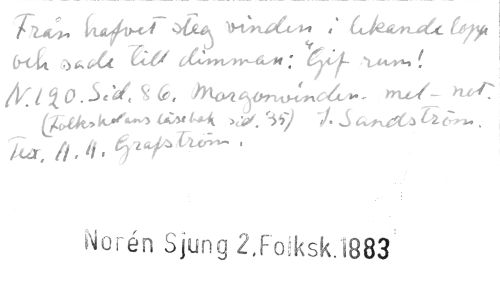 Från hafvet steg vinden i lekande lopp
och sade till dimman: "Gif rum!
N. 120. Sid. 86. Morgonvinden. mel-not.
(Folkskolans läsebok sid. 35) J. Sandström.
Tex. A. A. Grafström.
Norén Sjung 2. Folksk. 1883